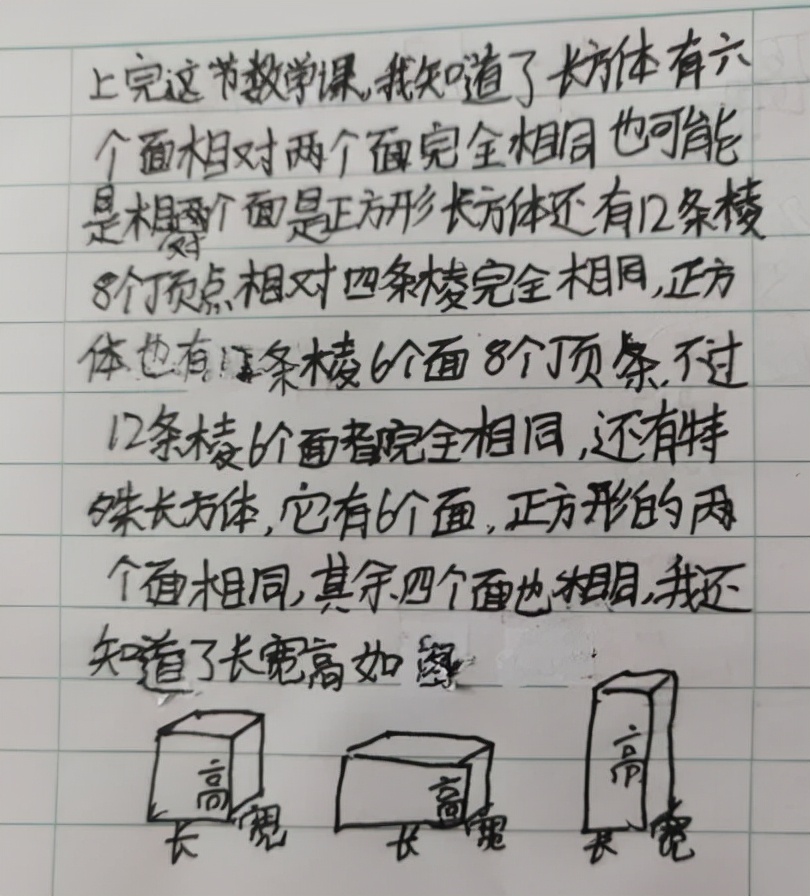 上完这节数学课,我知道了长方体有六
个面相对两个面完全相同也可能
是相对两个面是正方形长方体还有12条棱
8个顶点相对四条棱完全相同,正方
体也有12条棱6个面8个顶条,不过
12条棱6个面都完全相同,还有特
殊长方体,它有6个面,正方形的两
个面相同,其余四个面也相同,我还
知道了长宽高如图
高 高 高
长 宽 长 宽 长 宽